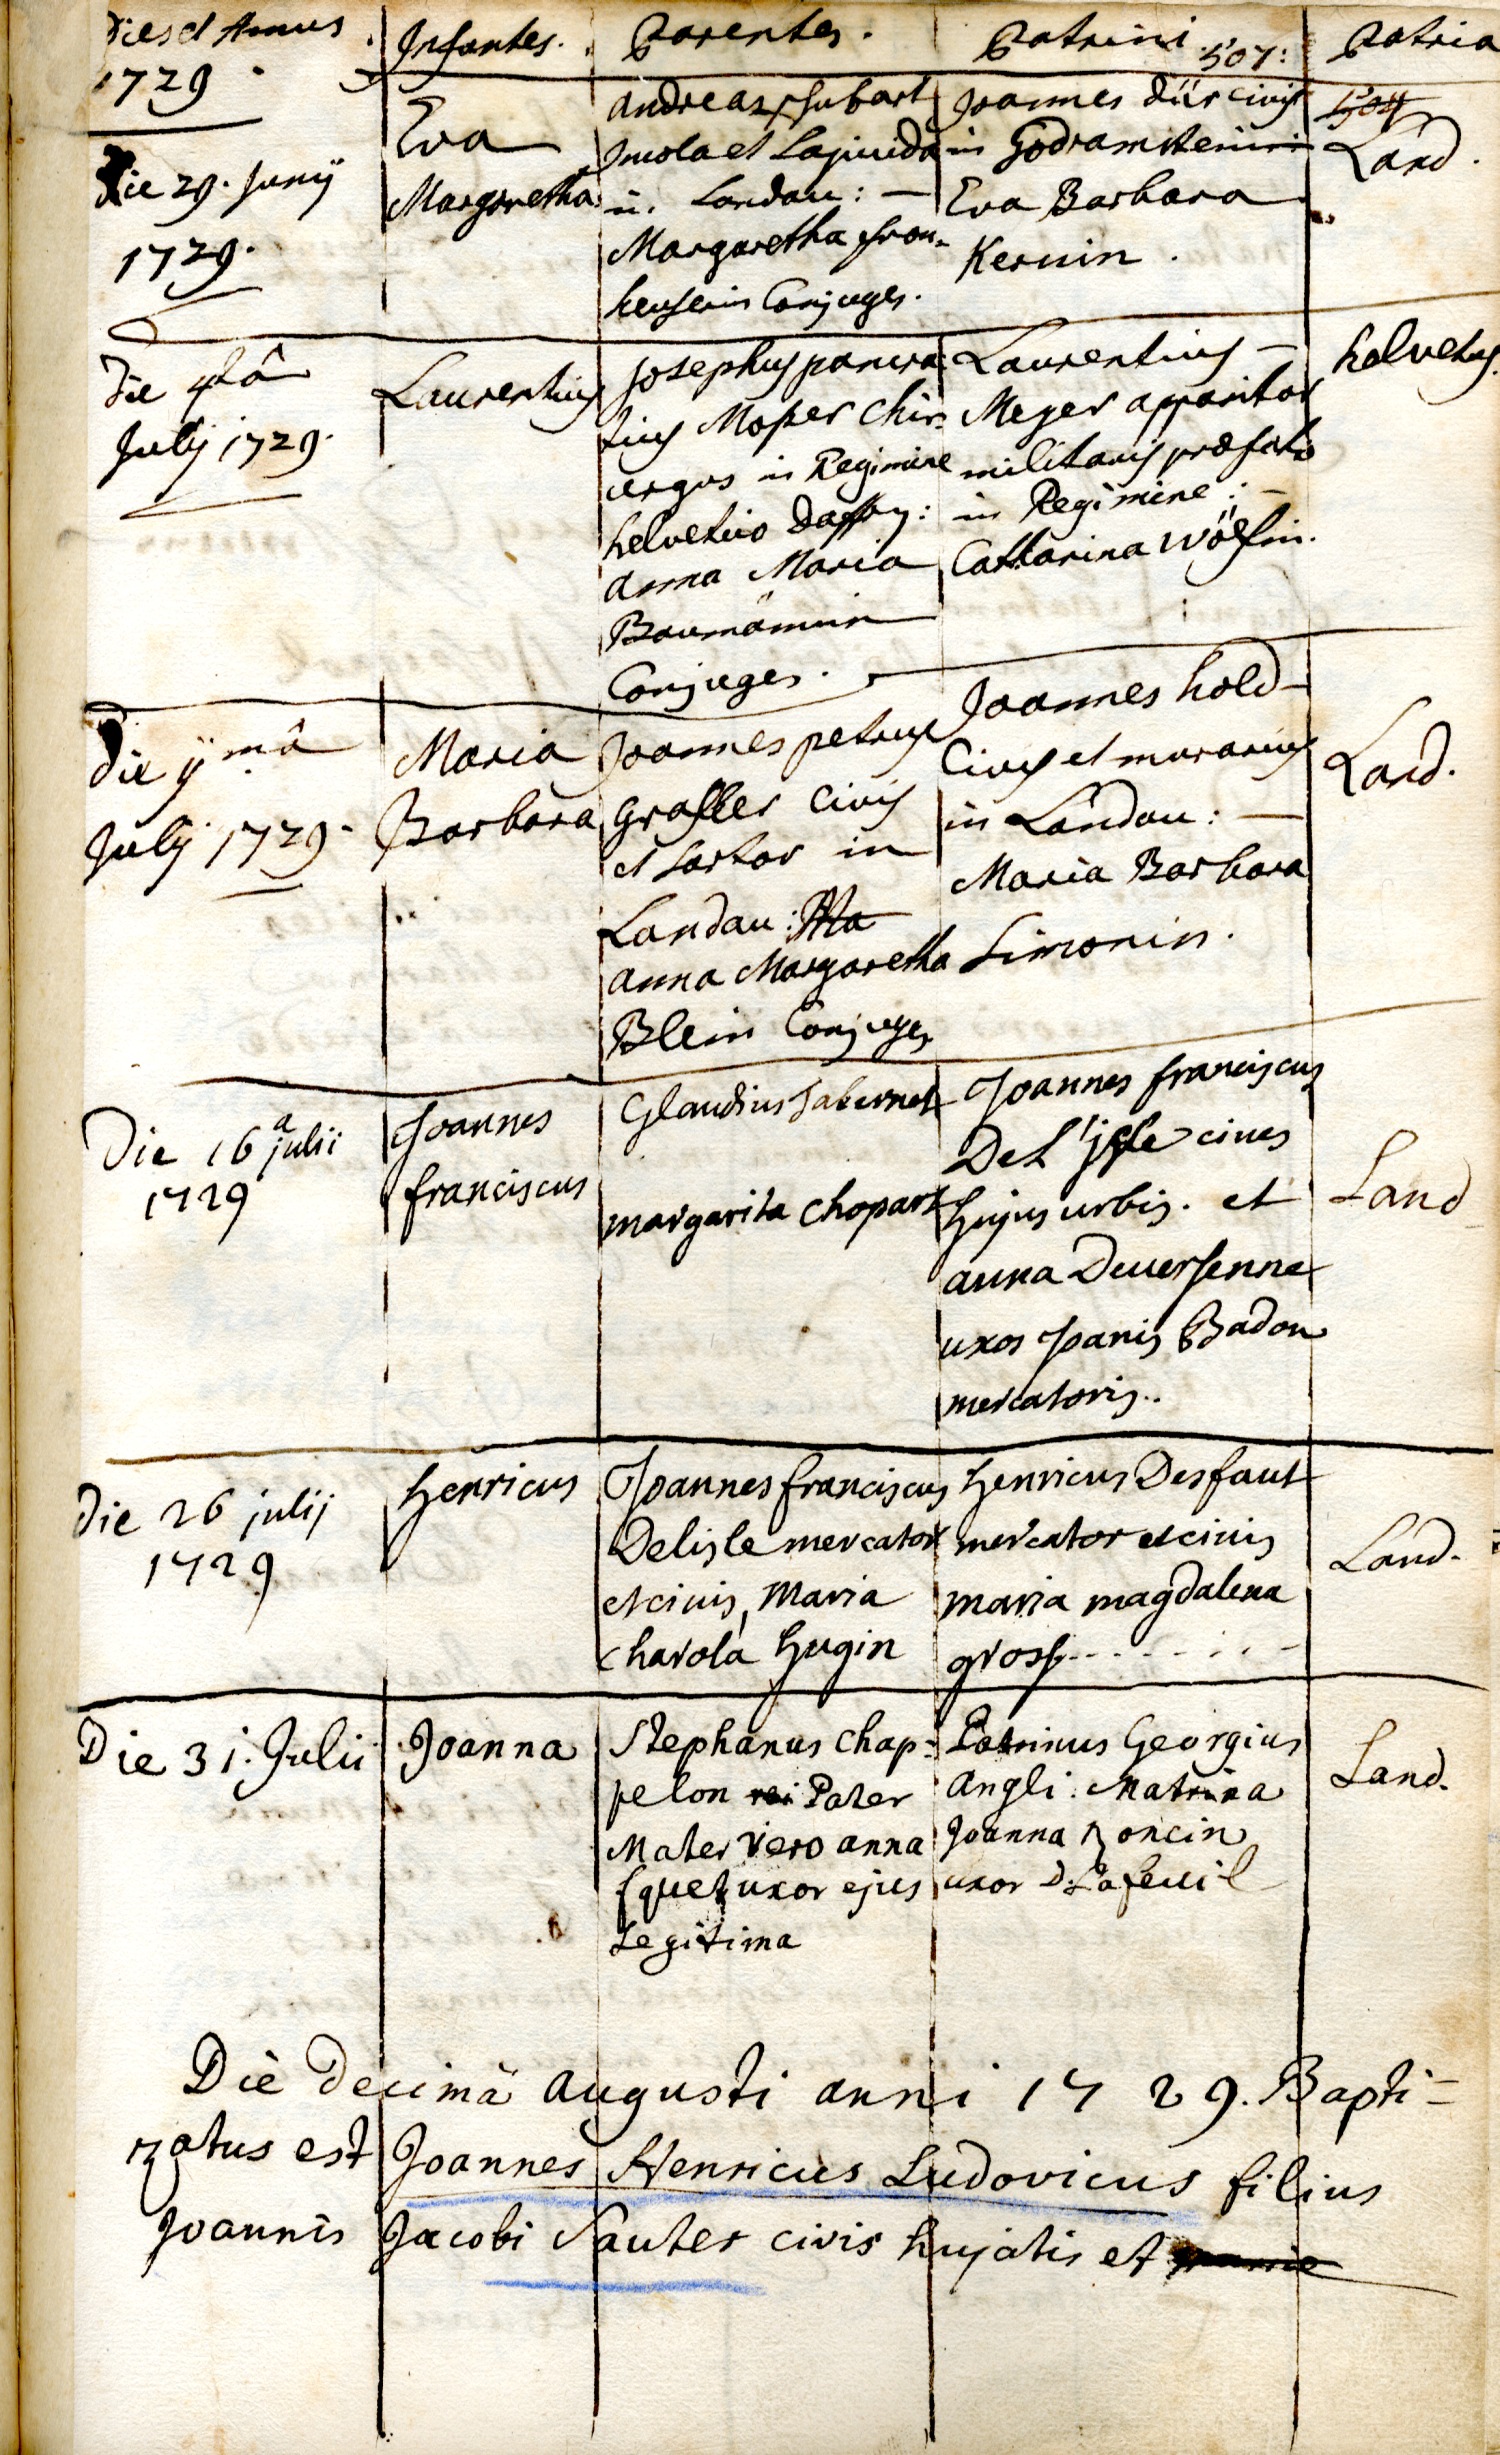 Dies et Annus
1729.
Infantes.
Parentes.
Patrini.
507:
Patria
Die 29. Junÿ
1729.
Eva
Margaretha
andreas schubart
Incola et Lapicida
in Landau: —
Margaretha fron-
heuserin Conjuges.
Joannes Dür civis
in Godramstein
Eva Barbara
Kernin.
Land.
Die 4tâ
Julÿ 1729.
Laurentius
Josephus pancra
tius Moser Chir-
urgus in Regimine
helvetico Daffry:
anna Maria
Baumännin
Conjuges.
Laurentius —
Meyer apparitor
militaris præfato
in Regimine: —
Catharina Wölfin.
helvetus.
Die ÿ mâ
Julÿ 1729.
Maria
Barbara
Joannes petrus
graffer Civis
et sartor in
Landau: Ma
anna Margaretha
Blein Conjuges
Joannes hold-
Civis et murarius
in Landau: —
Maria Barbara
Simonin.
Land.
Die 16 a julii
1729
Joannes
franciscus
Glaudius Tabernet
margarita chopart
Joannes franciscus
De L'isle cives
hujus urbis. et
anna Deversenne
uxor Joanis Badon
mercatoris..
Land
Die 26 julij
1729
henricus
Joannes franciscus
Delisle mercator
et civis, Maria
charola hugin
henricus Desfaut
mercator et civis
maria magdalena
grossi
Land.
Die 31. Julii
Joanna
Stephanus chap-
pelon Pater
Mater vero anna
squet uxor ejus
Legitima
Patrinus Georgius
angli. Matrina
Joanna Poncin
uxor D. Lafeuil
Land.
Die decimâ augusti anni 1729. Bapti-
zatus est Joannes Henricus Ludovicus filius
Joannis Jacobi Sauter civis hujatis et